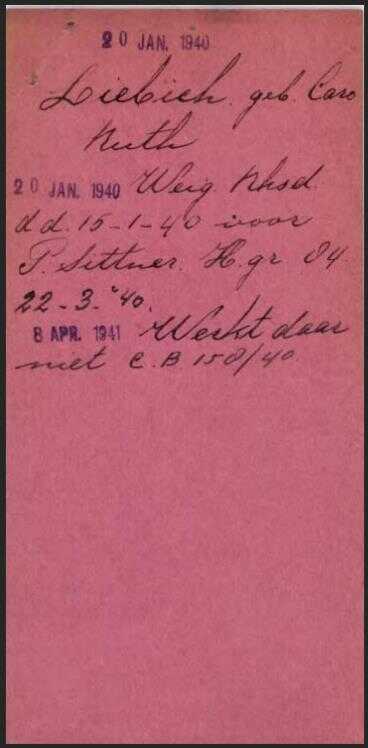 20 JAN. 1940
Liebich. geb. Caro
Ruth
20 JAN. 1940 Weig. Rhsd.
d.d. 15-1-40 voor
P. Sittner. H.gr 84.
22-3-'40.
8 APR. 1941 Werkt daar
niet C.B 158/40